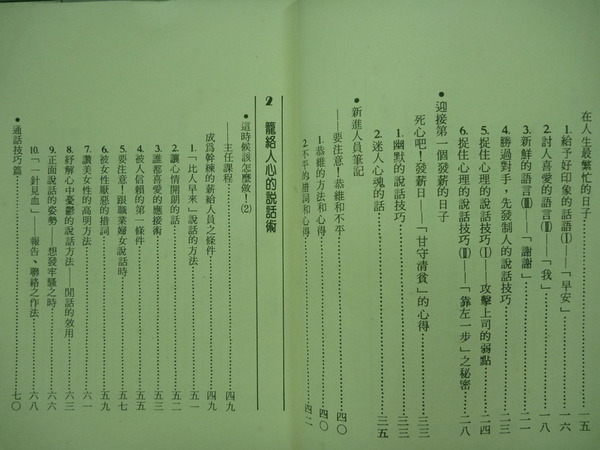 在人生最繁忙的日子……一五
1.給予好印象的話語(Ⅰ)——「早安」……一六
2.討人喜愛的語言(Ⅱ)——「我」……一八
3.新鮮的語言(Ⅲ)——「謝謝」……二一
4.勝過對手，先發制人的說話技巧……二三
5.捉住心理的說話技巧(Ⅰ)——攻擊上司的弱點……二四
6.捉住心理的說話技巧(Ⅱ)——「靠左一步」之秘密……二八
●迎接第一個發薪的日子
死心吧！發薪日——「甘守清貧」的心得……三三
1.幽默的說話技巧……三三
2.迷人心魂的話……三五
●新進人員筆記
——要注意！恭維和不平……四○
1.恭維的方法和心得……四○
2.不平的措詞和心得……四二
2 籠絡人心的說話術
●這時候該怎麼做！(2)
——主任課程……四九
成為幹練的薪給人員之條件……四九
1.「比人早來」說話的方法……五一
2.讓心情開朗的話……五二
3.誰都喜愛的應接術……五三
4.被人信賴的第一條件……五五
5.要注意！跟職業婦女說話時……五七
6.被女性厭惡的措詞……五九
7.讚美女性的高明方法……六一
8.紓解心中憂鬱的說話方法 閒話的效用……六三
9.正面說話的姿勢 想發牢騷之時……六六
10.「一針見血」——報告、聯絡之作法……六八
●通話技巧篇……七○